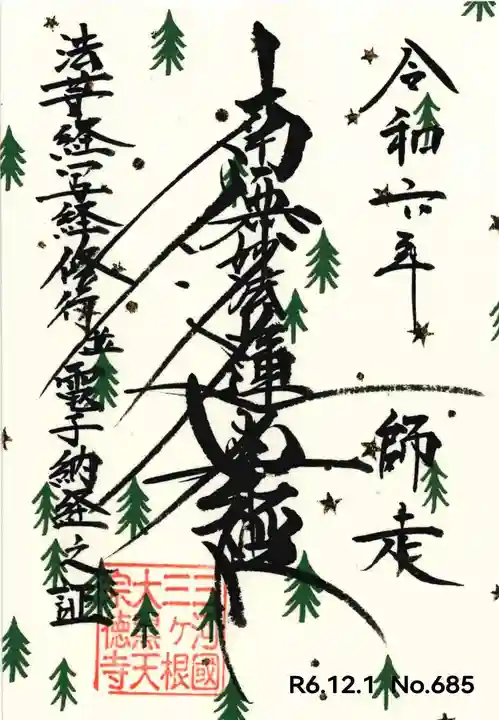 令和六年 師走
南無妙法蓮華経
法華経写経修行並電子納経之証
三河國
三ヶ根
大黒天
宗徳寺
R6.12.1 No.685